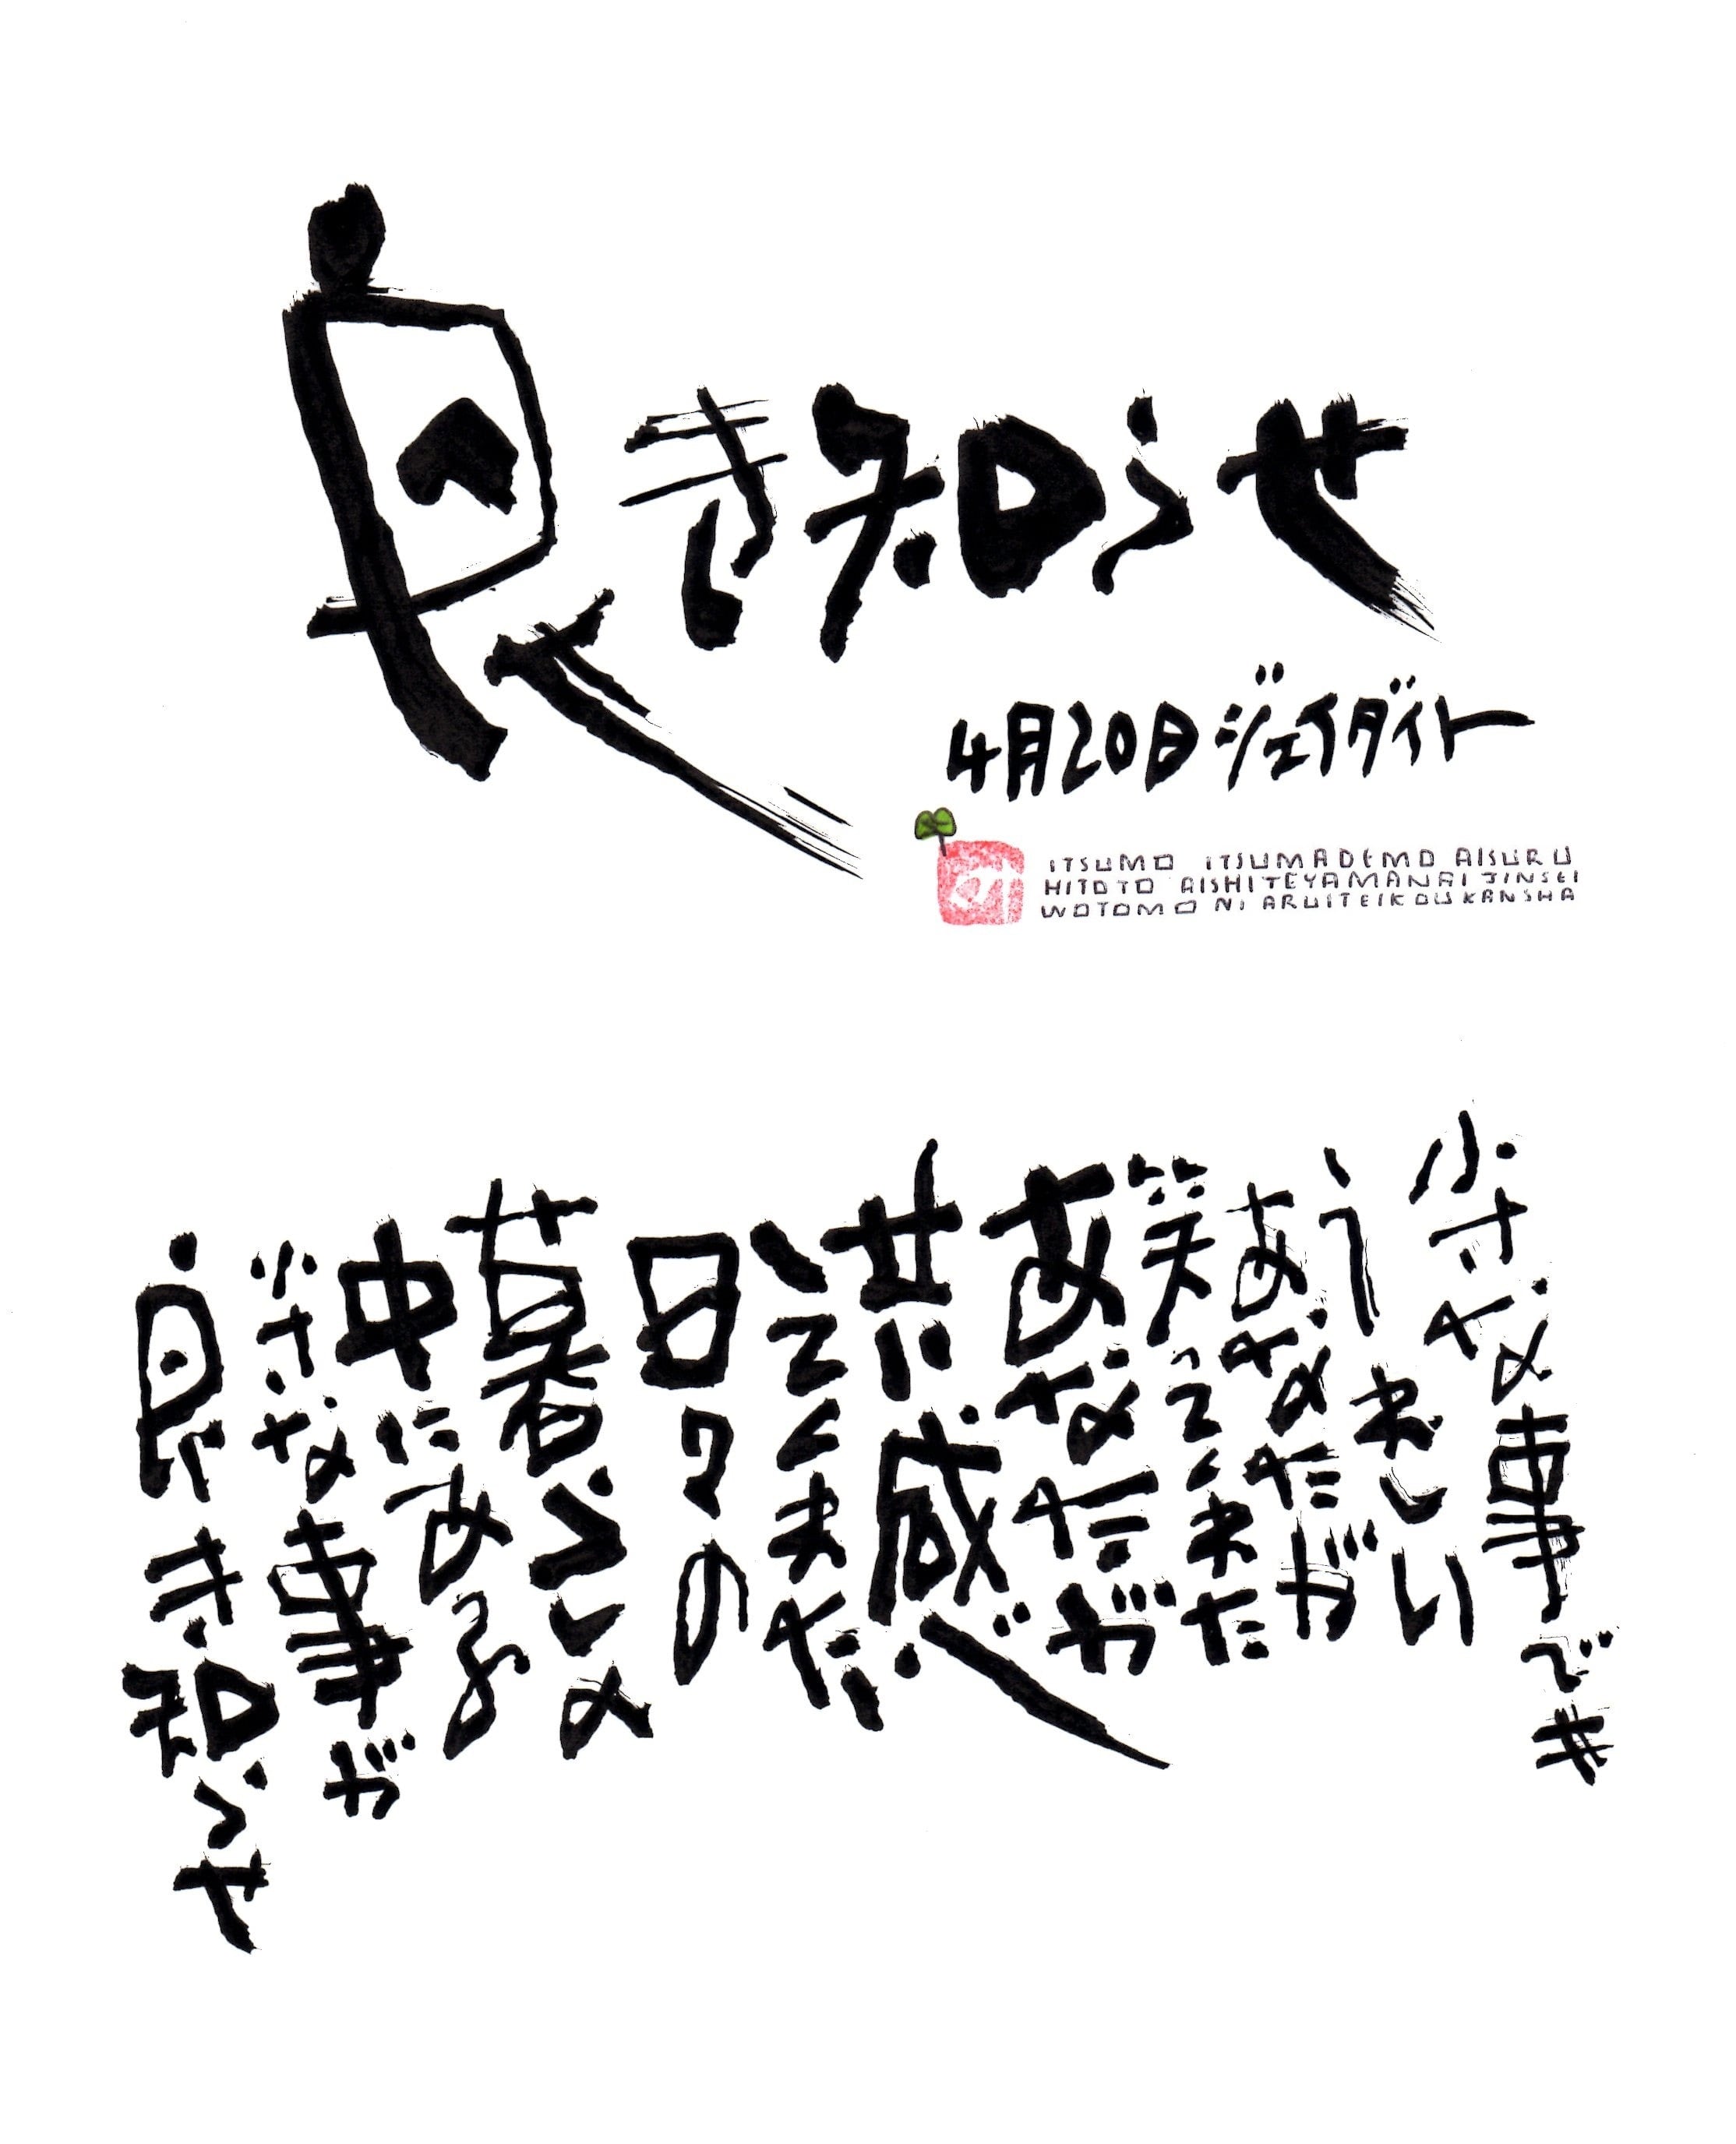 良き知らせ
4月20日ジェイダイト
ITSUMO ITSUMADEMO AISURU
HITOTO AISHITEYAMANAI JINSEI
WOTOMO NI ARUITEIKOU KANSHA
小さな事でも
うれしい
あなたが
笑ってくれた
あなたが
共感
してくれた
日々の
暮らしの
中にある
小さな事が
良き知らせ